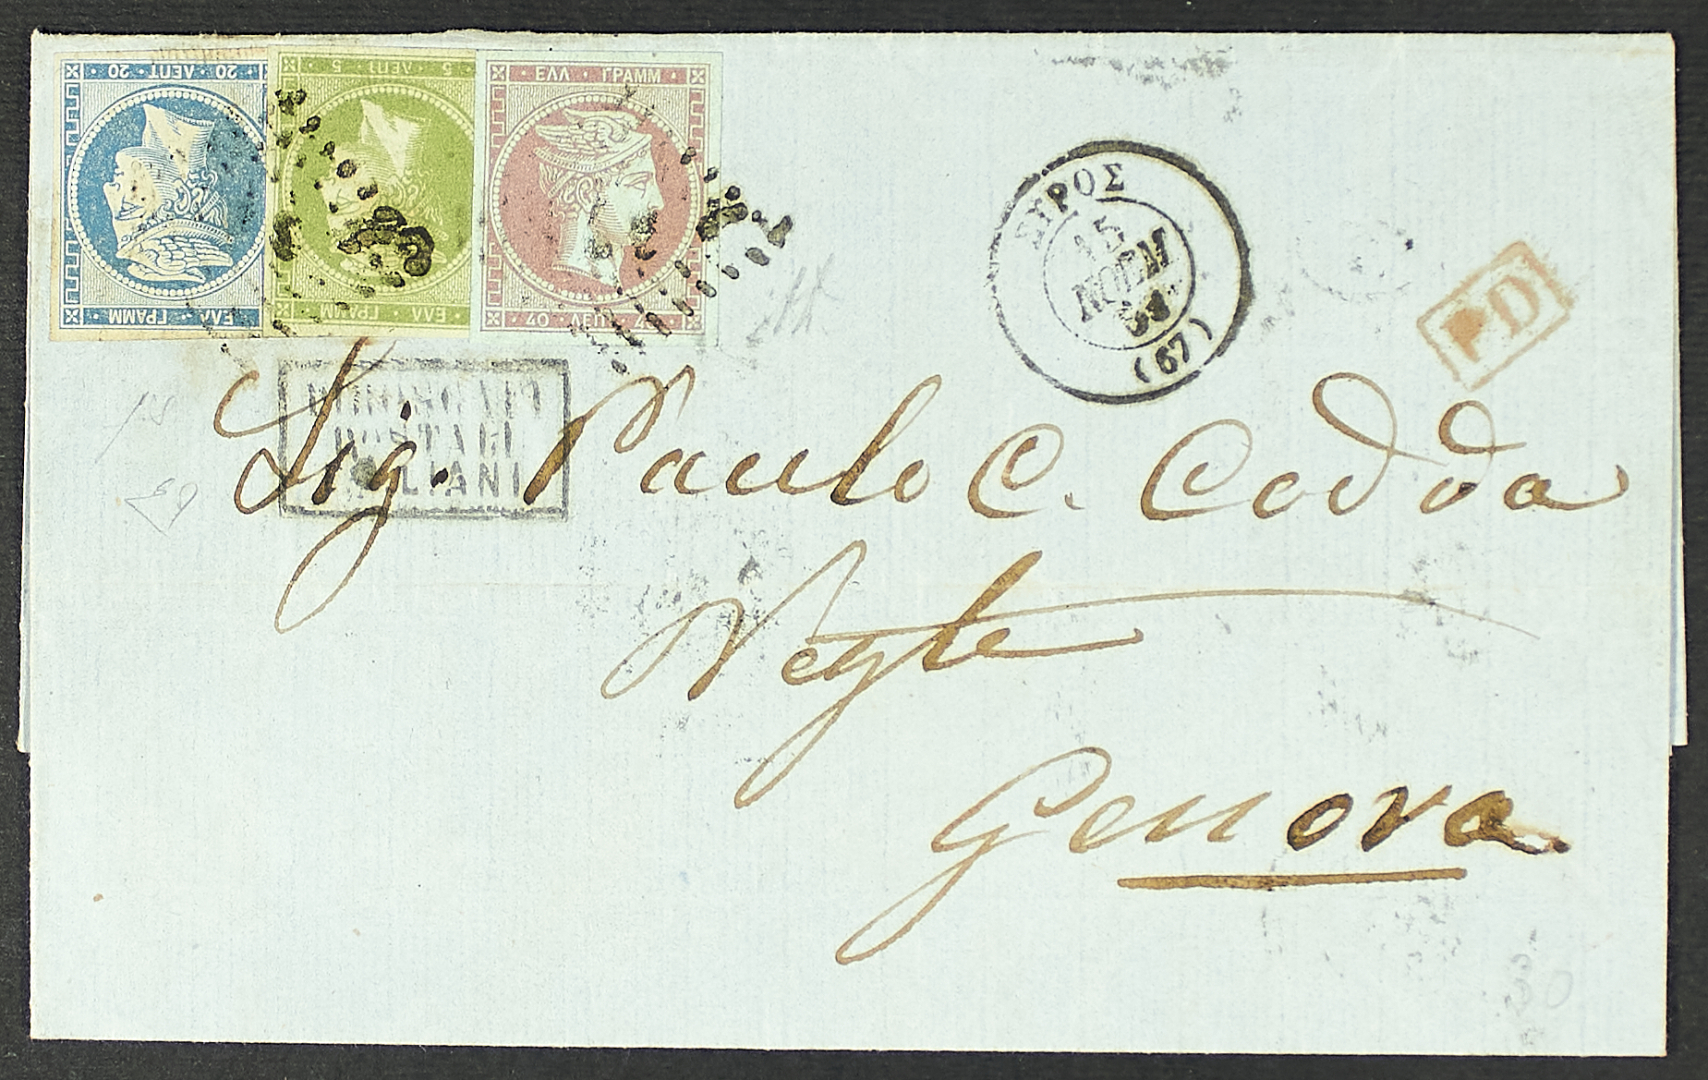 20 · ΛΕΠΤ · 20
ΕΛΛ · ΓΡΑΜΜ
5 · ΛΕΠΤ · 5
ΕΛΛ · ΓΡΑΜΜ
ΕΛΛ · ΓΡΑΜΜ
40 · ΛΕΠ · 40
ΣΥΡΟΣ
15
ΝΟΕΜ
(67)
PD
PIROSCAFI
POSTALI
ITALIANI
Sig. Paulo C. Codda
Negte
Genova